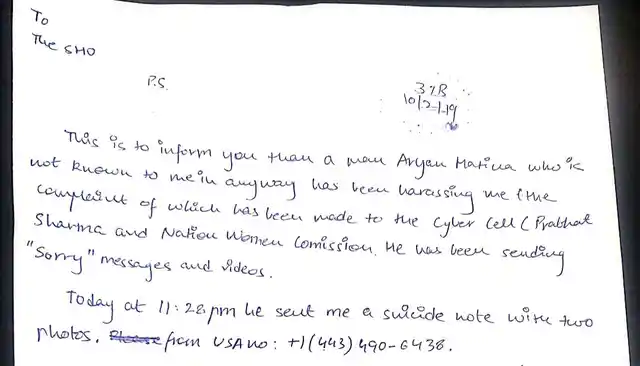 To
The SHO
P.S.
3 7/B
10/2-1-19
This is to inform you than a man Aryan Matina who is
not known to me in anyway has been harassing me (the
complaint of which has been made to the Cyber Cell (Prabhat
Sharma and Nation Women Comission. He has been sending
"Sorry" messages and videos.
Today at 11:28 pm he sent me a suicide note with two
photos. from USA no: +1(443) 490-6438.